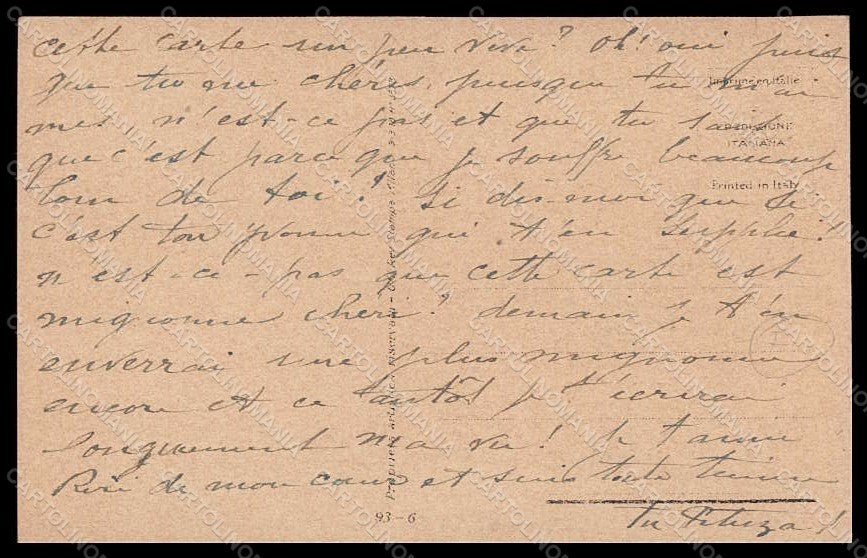 cette carte un peu vive? Oh! oui puis
que tu me chéris, puisque tu m'ai
mes n'est-ce pas et que tu sais
que c'est parce que je souffre beaucoup
loin de toi? Si dis-moi que si
c'est ton qui t'en supplie!
n'est-ce-pas que cette carte est
mignonne chéri? demain je t'en
enverrai une plus mignonne
encore et ce tantôt je t'écrirai
longuement m a vie! Je t'aime
Riri de mon cœur et suis toute tienne
Ta !
Imprimé en Italie
EDIZIONE
ITALIANA
Printed in Italy
93-6
CARTOLINOMANIA